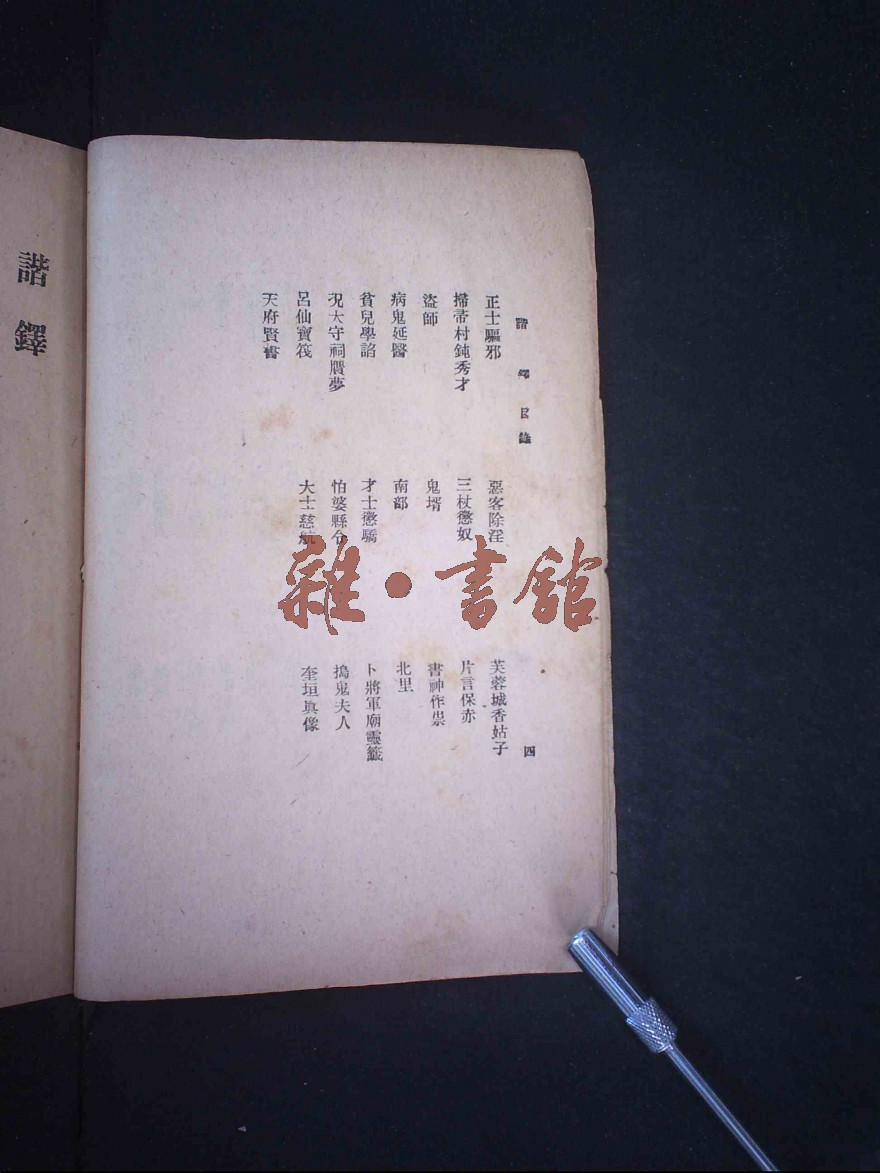 諧鐸目錄 四
正士驅邪 惡客除淫 芙蓉城香姑子
掃帚村鈍秀才 三杖懲奴 片言保赤
盜師 鬼壻 書神作祟
病鬼延醫 南部 北里
貧兒學諂 才士懲驕 卜將軍廟靈籤
况太守祠贋夢 怕婆縣令 搗鬼夫人
呂仙寶筏 大士慈航 奎垣眞像
天府賢書
諧鐸
雜·書館